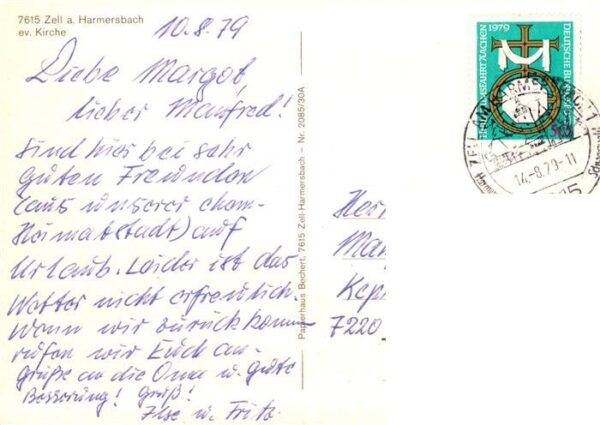 7615 Zell a. Harmersbach
ev. Kirche
10.8.79
Liebe Margot,
lieber Manfred!
Sind hier bei sehr
guten Freunden
(aus unserer ehem.
Heimatstadt) auf
Urlaub. Leider ist das
Wetter nicht erfreulich.
Wenn wir zurück komm-
rufen wir Euch an-
Grüße an die Oma u. gute
Besserung! Gruß!
Ilse u. Fritz.
Papierhaus Bechert, 7615 Zell-Harmersbach – Nr. 2085/30A
1979
DEUTSCHE BUNDESPOST
ZELL AM HARMERSBACH 1
14.-8.79-11
Her
Man
Kep
7220